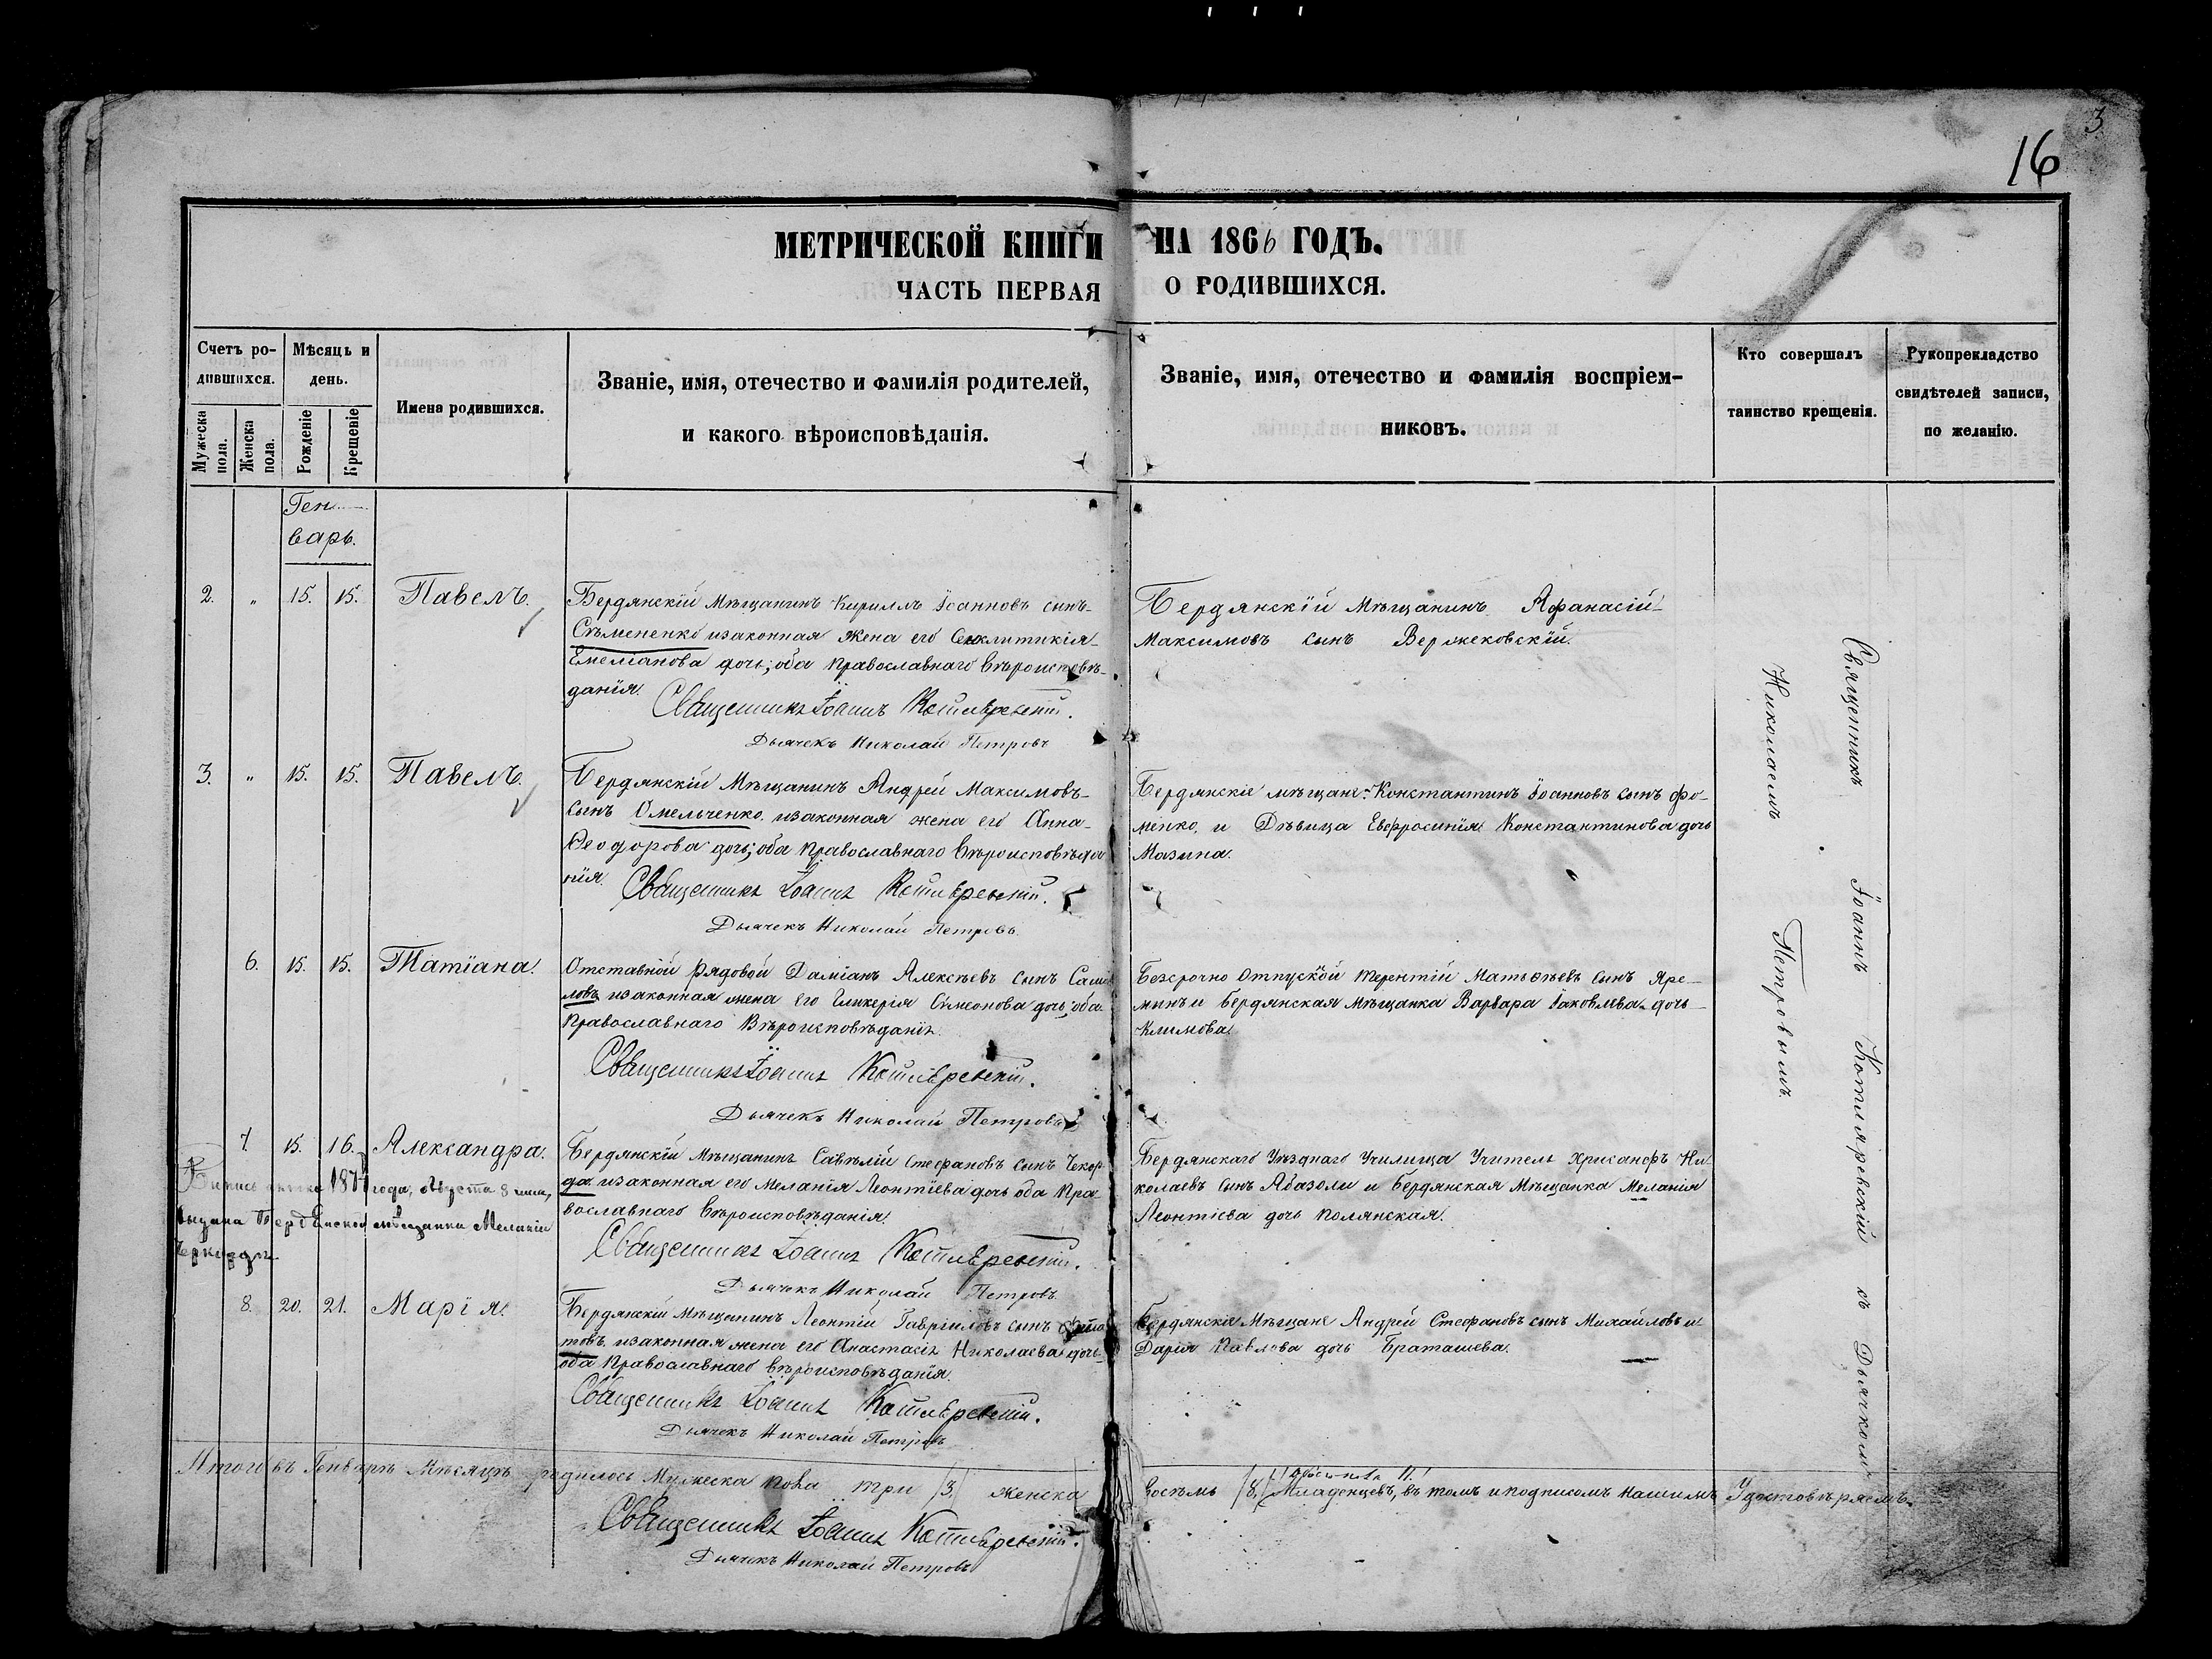 3
16
МЕТРИЧЕСКОЙ КНИГИ НА 1866 ГОДЪ.
ЧАСТЬ ПЕРВАЯ О РОДИВШИХСЯ.
Счетъ ро-
дившихся.
Мужеска пола.
Женска пола.
Мѣсяцъ и
день.
Рожденіе
Крещеніе
Имена родившихся.
Званіе, имя, отечество и фамилія родителей,
и какого вѣроисповѣданія.
Званіе, имя, отечество и фамилія воспріем-
никовъ.
Кто совершалъ
таинство крещенія.
Рукопрекладство
свидѣтелей записи,
по желанію.
Ген-
варь.
2. „ 15. 15. Павелъ.
Бердянскій Мѣщанинъ Кириллъ Іоанновъ сынъ
Сѣмененко изаконная жена его Сѵнклитикія
Емеліанова дочь; оба православнаго вѣроисповѣ-
данія.
Священникъ Іоаннъ Котляревскій.
Дьячекъ Николай Петровъ
Бердянскій Мѣщанинъ Афанасій
Максимовъ сынъ Вержековскій.
3. „ 15. 15. Павелъ.
Бердянскій Мѣщанинъ Андрей Максимовъ
сынъ Омельченко изаконная жена его Анна
Ѳеодорова дочь; оба православнаго Вѣроисповѣда
нія.
Священникъ Іоаннъ Котляревскій.
Дьячекъ Николай Петровъ.
Бердянскіе мѣщане: Константинъ Іоанновъ сынъ Фо-
менко, и Дѣвица Евфросинія Константинова дочь
Мазина.
6. 15. 15. Татіана.
Отставной рядовой Даміанъ Алексѣевъ сынъ
изаконная жена его Гликерія Сѵмеонова дочь, оба
Православнаго Вѣроисповѣданія.
Священникъ Іоаннъ Котляревскій.
Дьячекъ Николай Петровъ
Безсрочно отпускной Терентій Матѳѣевъ сынъ Яре-
минъ и Бердянская Мѣщанка Варвара Іаковлева дочь
Климова.
7. 15. 16. Александра.
Бердянскій Мѣщанинъ Савѣлій Стефановъ сынъ
изаконная его Меланія Леонтіева дочь оба Пра
вославнаго Вѣроисповѣданія.
Священникъ Іоаннъ Котляревскій.
Дьячекъ Николай Петровъ.
Бердянскаго Уѣзднаго Училища Учитель Хрисанфъ Ни
колаевъ сынъ Абазоли и Бердянская Мѣщанка Меланія
Леонтіева дочь Полянская.
года, Августа 8
выдана Бердянской мѣщанки Меланіи
8. 20. 21. Марія.
Бердянскій Мѣщанинъ Леонтій Гавріиловъ сынъ
изаконная жена его Анастасія Николаева дочь
оба Православнаго вѣроисповѣданія.
Священникъ Іоаннъ Котляревскій.
Дьячекъ Николай Петровъ
Бердянскіе Мѣщане Андрей Стефановъ сынъ Михайловъ и
Дарія Павлова дочь Браташева.
Священникъ Іоаннъ Котляревскій съ Дьячкомъ
Николаемъ Петровымъ.
Итого въ Генварѣ Мѣсяцѣ родилось Мужеска пола три /3/ женска восѣмь /8/ Младенцевъ, въ томъ и подписомъ нашимъ Удостовѣряемъ.
Священникъ Іоаннъ Котляревскій.
Дьячекъ Николай Петровъ